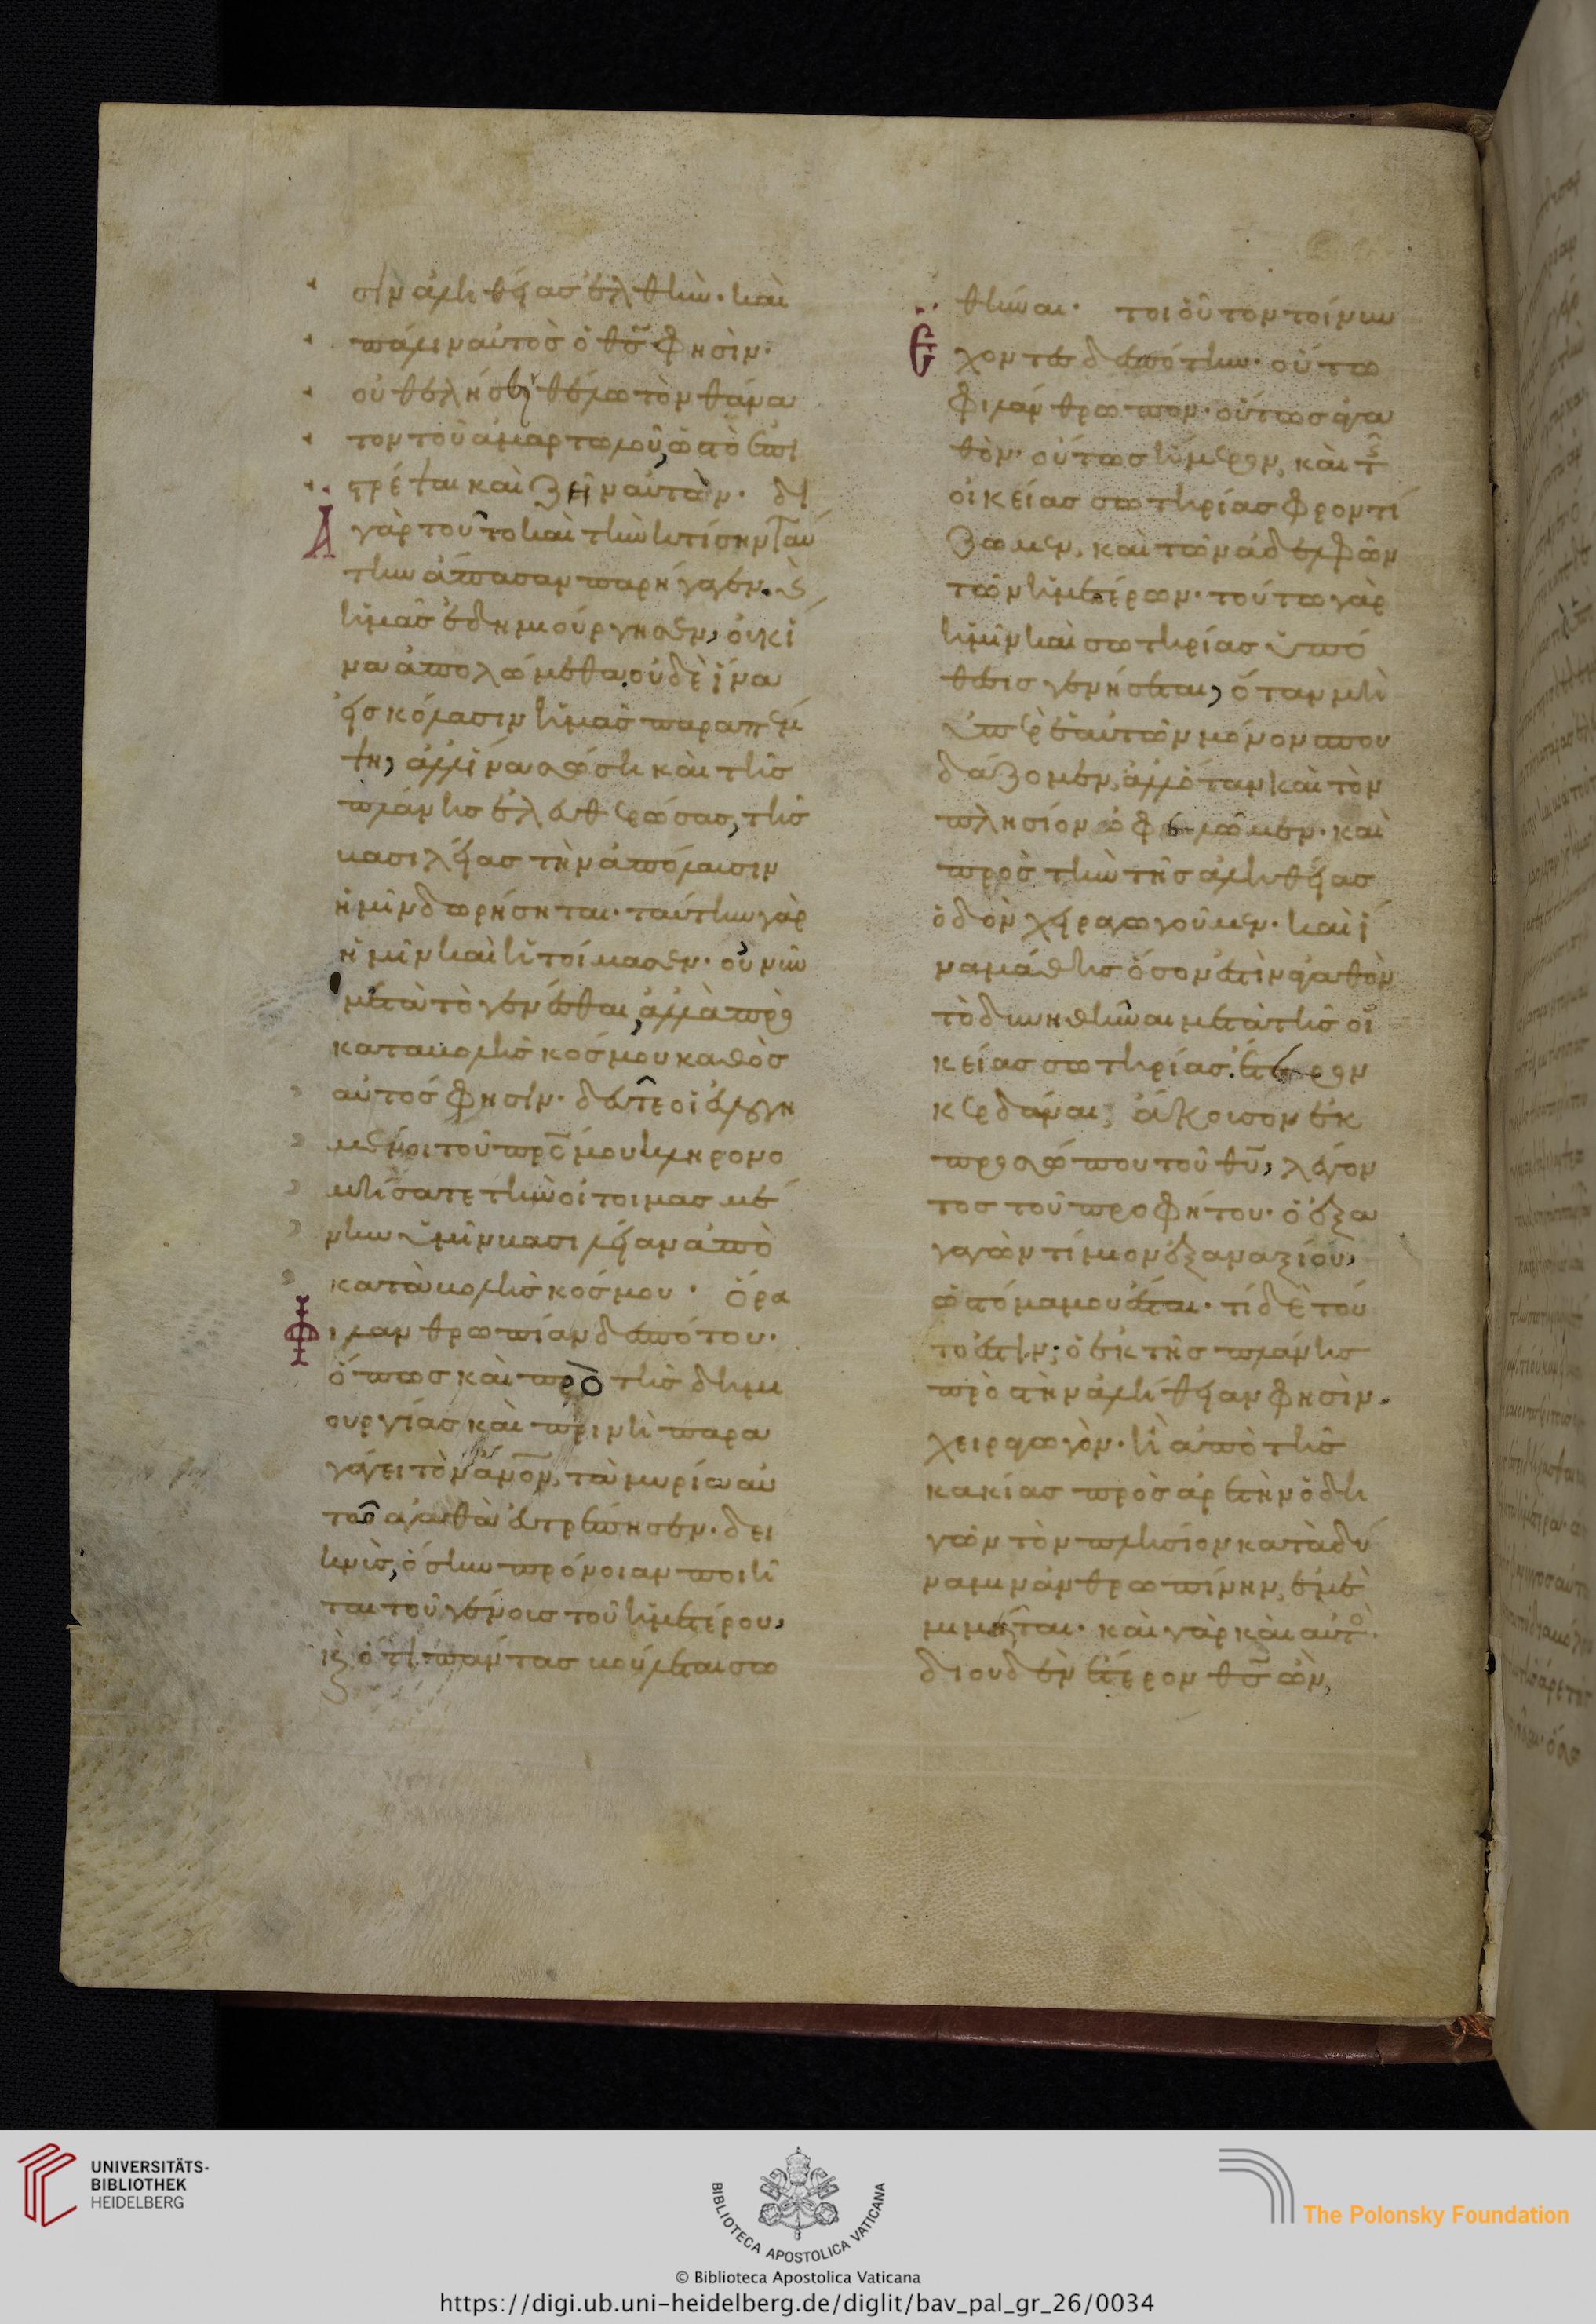 σιν ἀληθείας ἐλθεῖν· καὶ
πάλιν αὐτὸς ὁ θ̅ς̅ φησὶν·
οὐ θελήσει θέλω τὸν θάνα
τον τοῦ ἁμαρτωλοῦ, ὡς τὸ ἐπι
στρέψαι καὶ ζῆν αὐτὸν· δι
Α γὰρ τοῦτο καὶ τὴν κτίσιν ταύ
την ἅπασαν παρήγαγεν. καὶ
ἡμᾶς ἐδημιούργησεν, οὐχ ἵ
να ἀπολώμεθα οὐδὲ ἵνα
εἰς κόλασιν ἡμᾶς παραπέμ
ψη, ἀλλ' ἵνα σώση καὶ τῆς
πλάνης ἐλευθερώσας, τῆς
βασιλείας τὴν ἀπόλαυσιν
ἡμῖν δωρήσηται· ταύτην γὰρ
ἡμῖν καὶ ἡτοίμασεν· οὐ νῦν
μετὰ τὸ γενέσθαι, ἀλλὰ πρὸ
καταβολῆς κόσμου καθὸς
αὐτός φησίν· δεῦτε οἱ εὐλογη
μένοι τοῦ πρ̅ς̅ μου κληρονο
μήσατε τὴν οἱτοιμασμέ
νην ὑμῖν βασιλείαν ἀπὸ
καταβολῆς κόσμου· ὅρα
Φιλανθρωπίαν δεσπότου·
ὅπως καὶ πρὸ τῆς δημι
ουργίας καὶ πρινὴ παρα
γάγει τὸν ἄν̅ο̅ν̅, τὰ μυρία αυ
τοῖς ἀγαθὰ εὐτρέπησεν· δει
κνὺς, ὅσην πρόνοιαν ποιῆ
ται τοῦ γένους τοῦ ἡμετέρου,
κ ὅτι πάντας βούλεται σω
θῆναι· τοιοῦτον τοίνυν
Ἔχοντες δεσπότην· οὕτω
φιλάνθρωπον· οὕτως ἀγα
θόν· οὕτως ἥμερον, καὶ τῆς
οἰκείας σωτηρίας φροντί
ζωμεν, καὶ τῶν ἀδελφῶν
τῶν ἡμετέρων· τούτω γὰρ
ἡμῖν καὶ σωτηρίας ὑπό
θεσις γενήσεται, ὅταν μὴ
ὑπὲρ ἑαυτῶν μόνον σπου
δάζομεν, ἀλλ' ὅταν καὶ τὸν
πλησίον ὀφελῶμεν· καὶ
πρὸς τὴν τῆς ἀληθείας
ὁδὸν χειραγωγοῦμεν· καὶ ἵ
να μάθης ὅσον ἐστὶν ἀγαθὸν
τὸ δυνηθῆναι μετὰ τῆς οἰ
κείας σωτηρίας, ἕτερον
κερδᾶναι, ἄκουσον ἐκ
προσώπου τοῦ θ̅υ̅, λέγον
τος τοῦ προφήτου· ὁ ἐξα
γαγὼν τίμιον ἐξ ἀναξίου,
ὡς στόμα μου ἔσται· τί δὲ τοῦ
τό ἐστιν; ὁ ἐκ τῆς πλάνης
πρὸς τὴν ἀλήθειαν φησὶν
χειραγωγὸν· ἢ ἀπὸ τῆς
κακίας πρὸς ἀρετὴν ὁδη
γῶν τὸν πλησίον κατὰ δύ
ναμιν ἀνθρωπίνην, ἐμὲ
μιμεῖται· καὶ γὰρ καὶ αὐτὸς
δι οὐδὲν ἕτερον θ̅ς̅ ὢν,
UNIVERSITÄTS-
BIBLIOTHEK
HEIDELBERG
BIBLIOTECA APOSTOLICA VATICANA
© Biblioteca Apostolica Vaticana
The Polonsky Foundation
https://digi.ub.uni-heidelberg.de/diglit/bav_pal_gr_26/0034